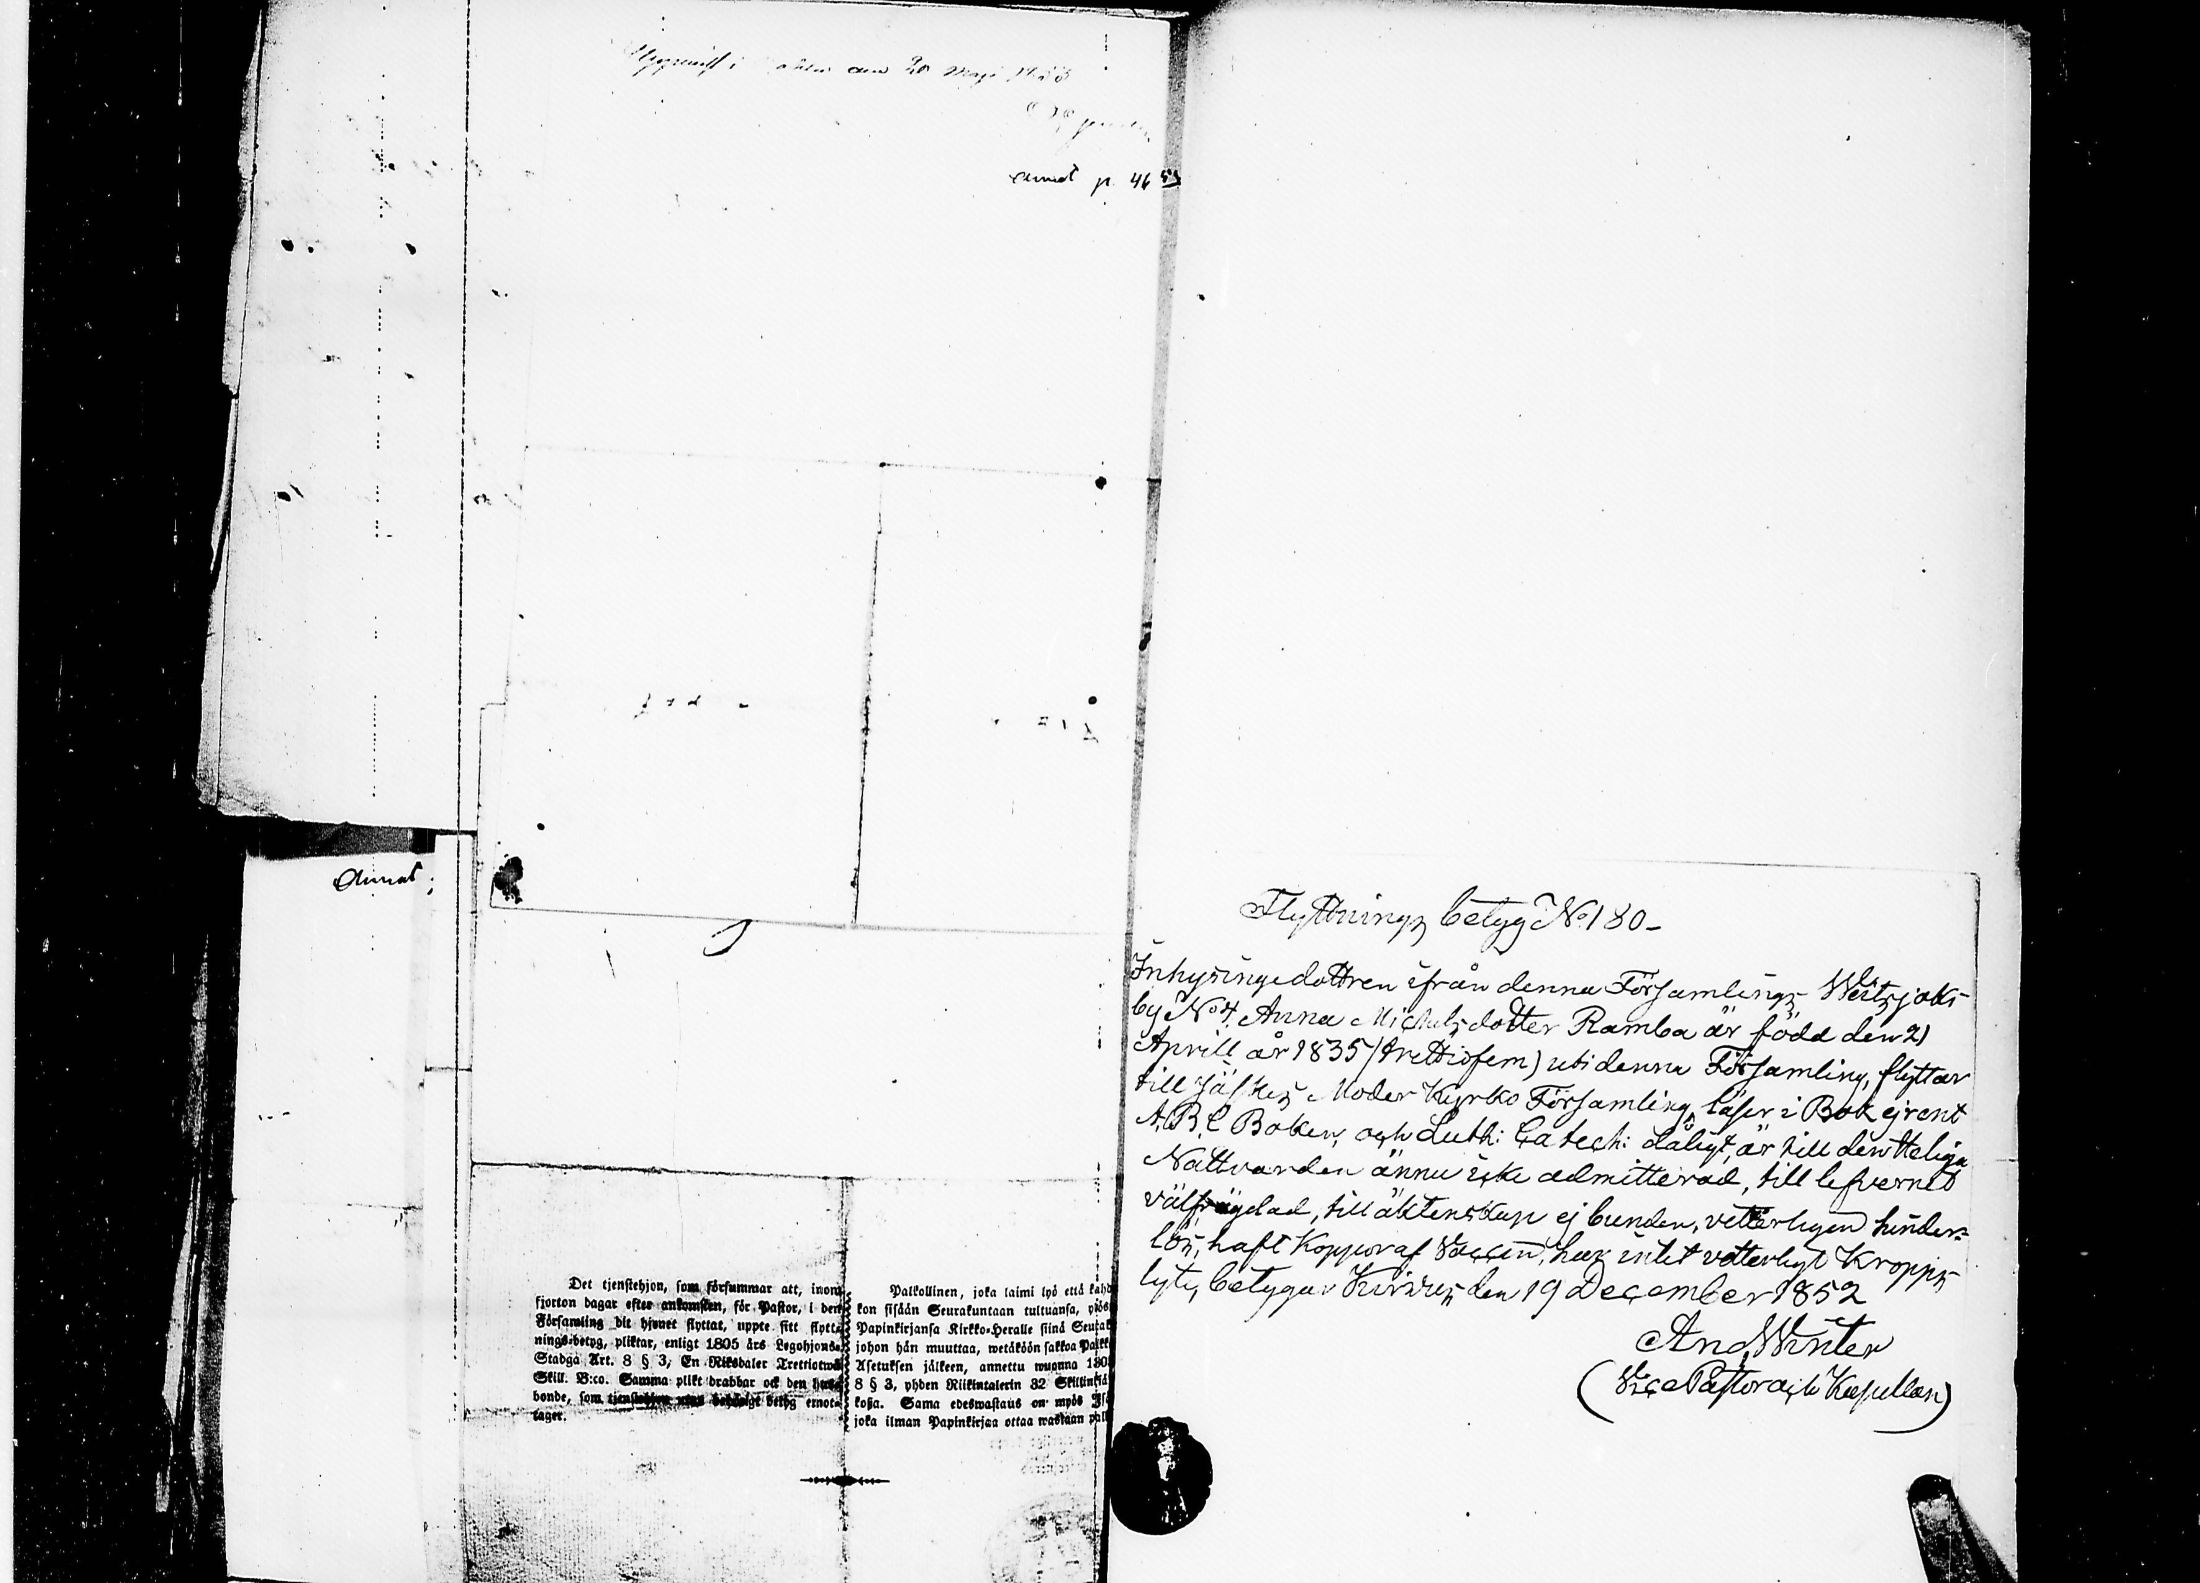 den 20 Maji
annot p. 46
Annot.
Det tjenstehjon, som försummar att, inom
fjorton dagar efter ankomsten, för Pastor, i den
Församling dit hjonet flyttat, uppte sitt flytt-
nings-betyg, pliktar, enligt 1805 års Legohjons-
Stadga Art. 8 § 3, En Riksdaler Trettiotwå
Skill. B:co. Samma plikt drabbar ock den hus-
bonde, som tjenstehjon utan behörigt betyg emot-
tager.
Palkollinen, joka laimi lyö että kahd
kon sisään Seurakuntaan tultuansa, ylös
Papinkirjansa Kirkko-Herralle siinä Seurak
johon hän muuttaa, wetäköön sakkoa Palk
Asetuksen jälkeen, annettu wuonna 180
8 § 3, yhden Riikintalerin 32 Skillinkiä
kossa. Sama edeswastaus on myös Is
joka ilman Papinkirjaa ottaa wastaan palk
Flyttnings betyg No 180 –
Inhysingedottren ifrån denna Församlings
by No 4, Anna Michelsdotter Ramba är född den 21
Aprill år 1835 (trettiofem) uti denna Församling, flyttar
till Jäskis Moder Kyrko Församling, läser i Bok ej rent
A.B.C Boken, och Luth: Catech: dåligt, är till den Heliga
Nattvarden ännu icke admitterad, till lefvernet
välfrägdad, till äktenskap ej bunden, vetterligen hinder-
lös, haft Koppor af Vaccin, har intet vetterligt Kropps
lyte, betygar Kirvus den 19 December 1852
And. Winter
(Vice Pastor och Kapellan)